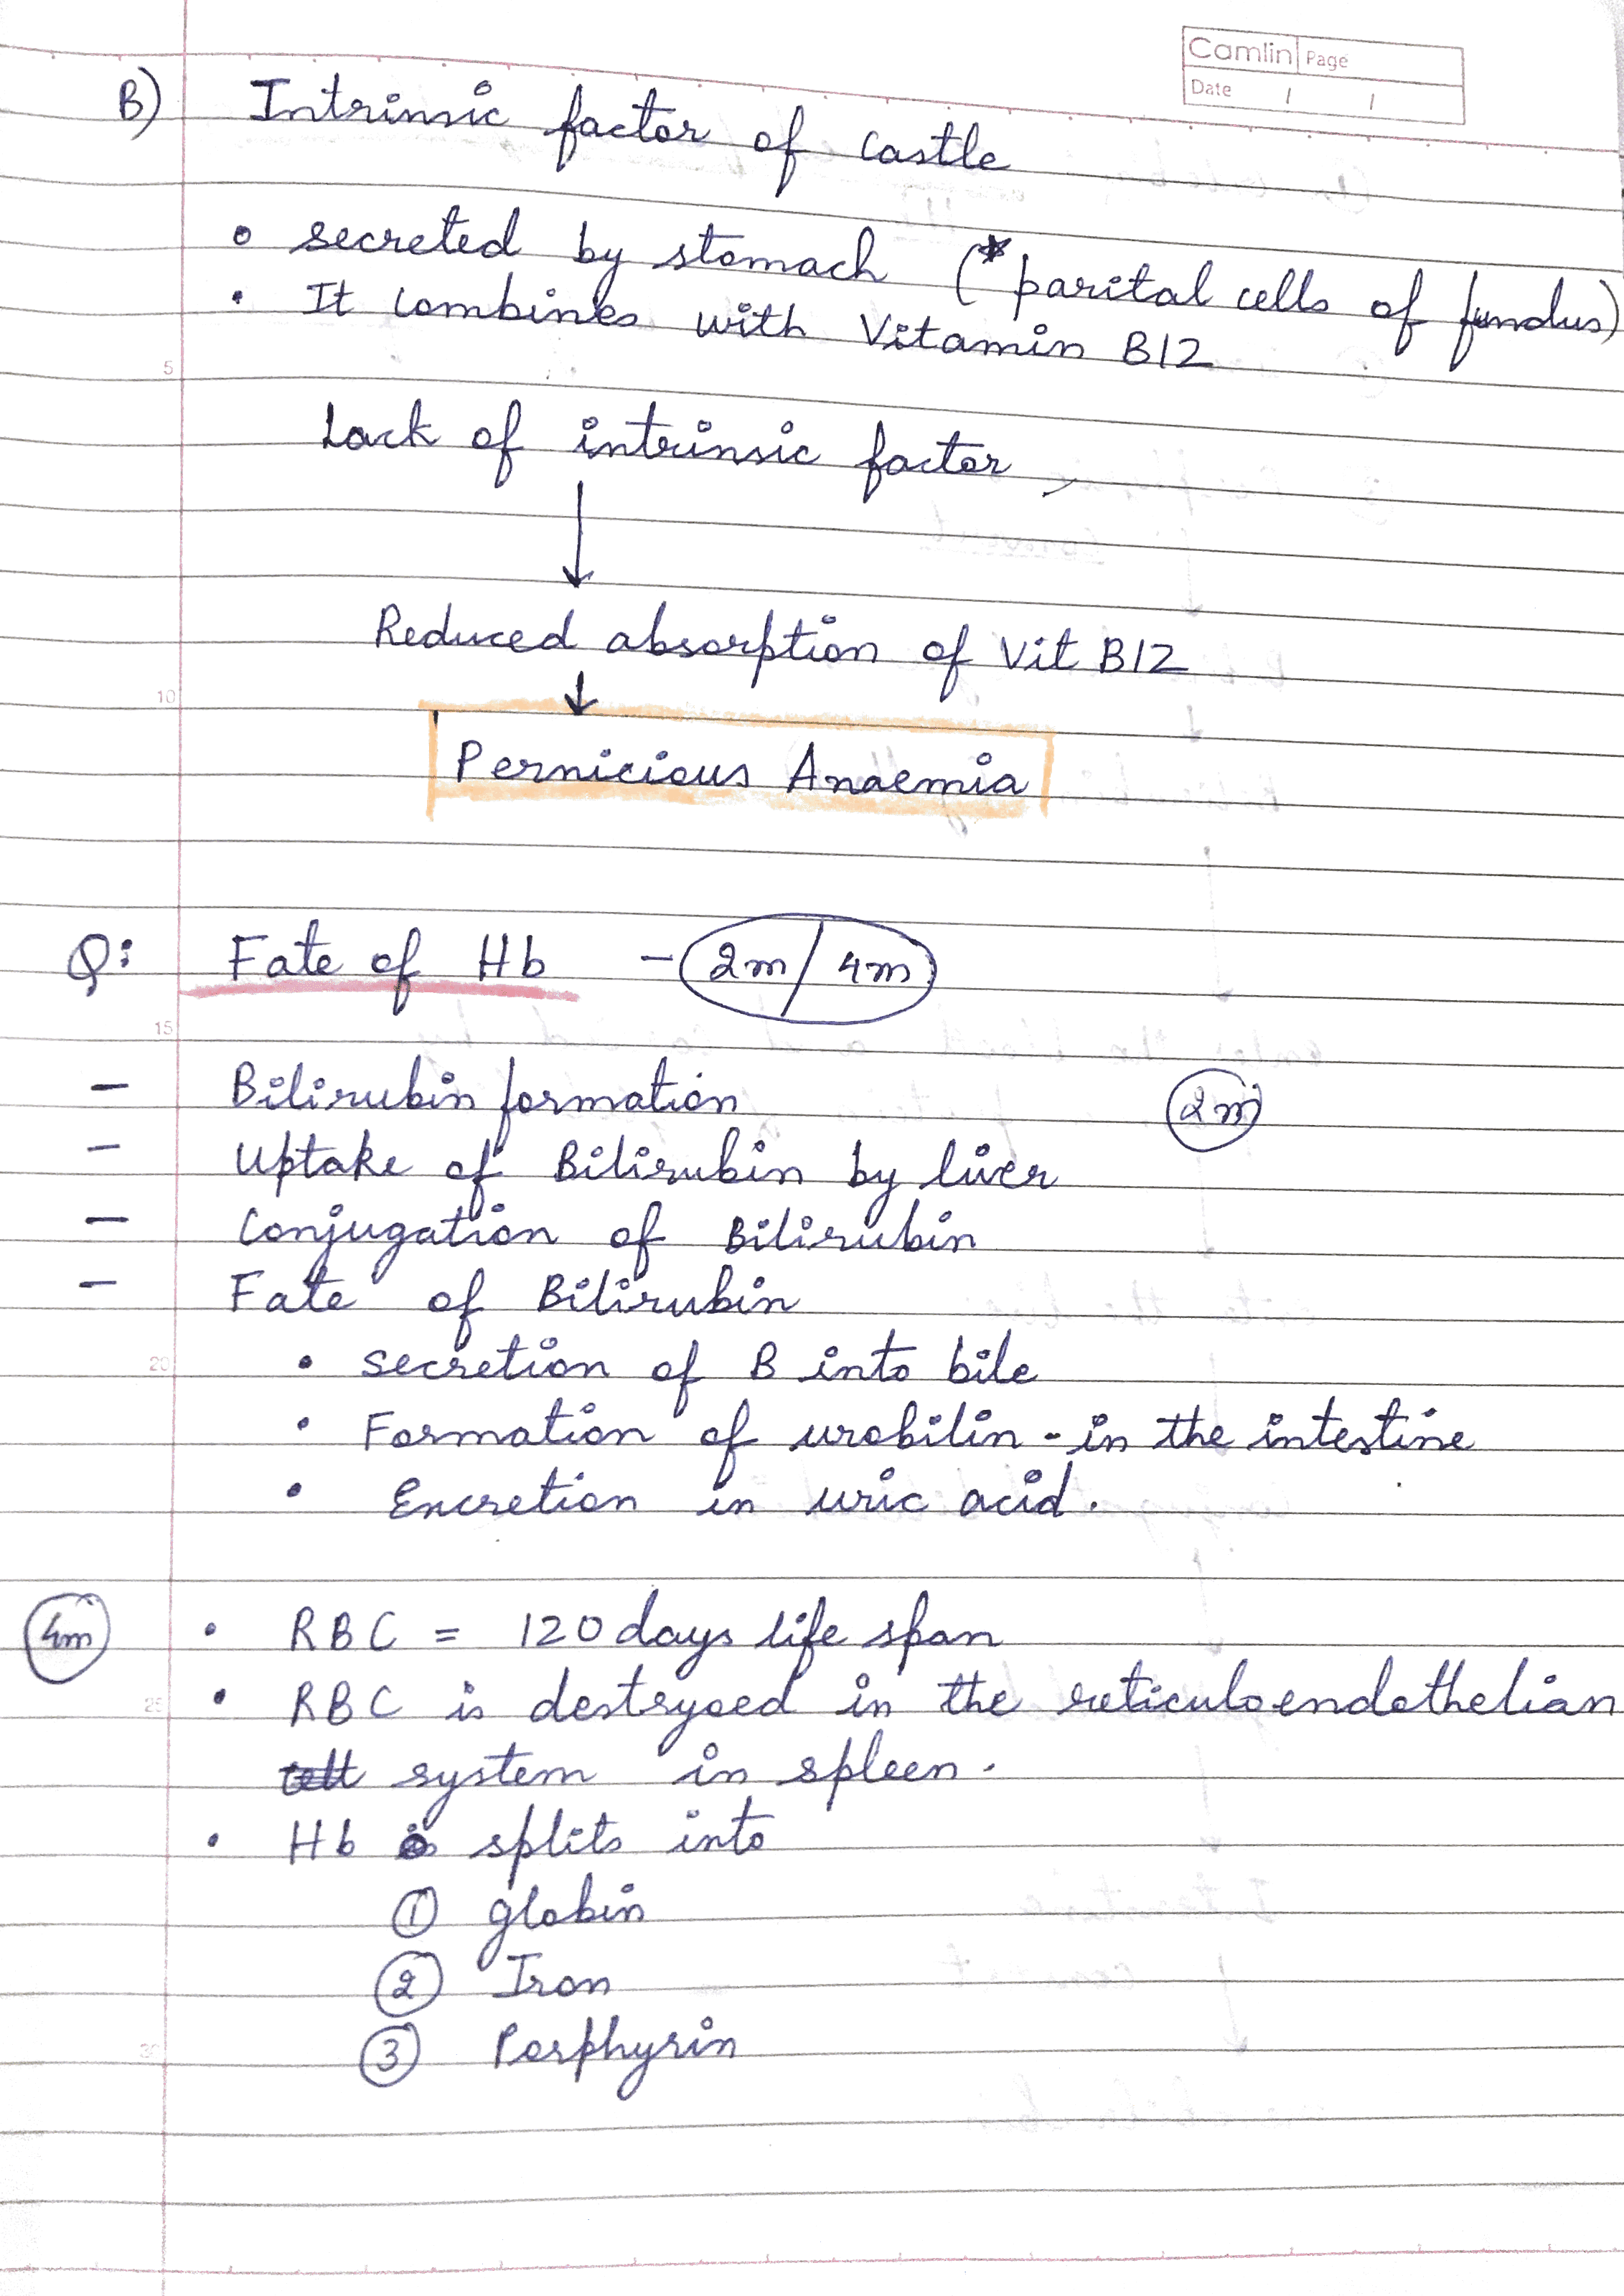 Camlin Page
Date / /
B) Intrinsic factor of castle
• secreted by stomach (* parital cells of fundus)
• It combines with Vitamin B12
5
Lack of intrinsic factor,
↓
Reduced absorption of Vit B12
↓
10
Pernicious Anaemia
Q: Fate of Hb - 2m/4m
15
- Bilirubin formation 2m
- Uptake of Bilirubin by liver
- Conjugation of Bilirubin
- Fate of Bilirubin
20
• secretion of B into bile
• Formation of urobilin - in the intestine
• Encretion in uric acid.
4m • RBC = 120 days life span
25
• RBC is destryoed in the reticuloendothelian
system in spleen.
• Hb splits into
① globin
② Iron
③ Porphyrin
30